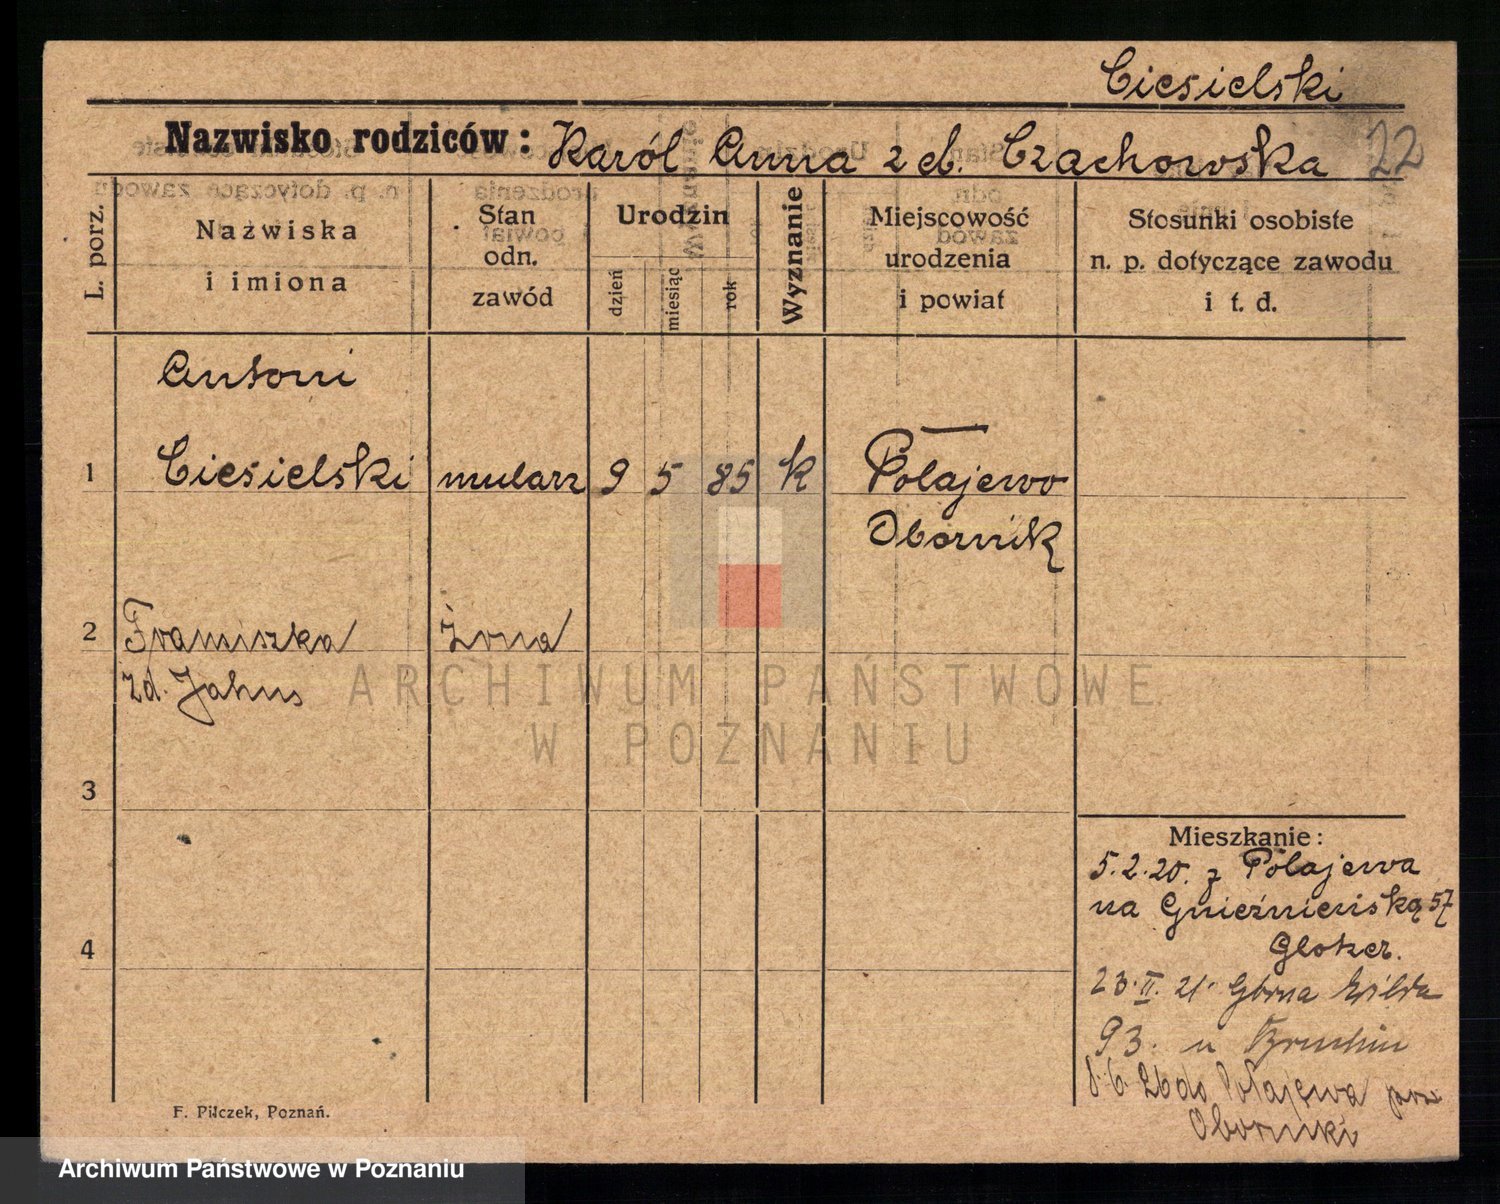 Ciesielski
Nazwisko rodziców: Karól Anna z d. Czachowska 22
L. porz.
Nazwiska i imiona
Stan odn. zawód
Urodzin
dzień
miesiąc
rok
Wyznanie
Miejscowość urodzenia i powiat
Stosunki osobiste n. p. dotyczące zawodu i t. d.
Antoni
1 Ciesielski mularz 9 5 85 k Połajewo
Obornik
2 Franciszka żona
zd. Jahns
3
4
Mieszkanie:
5.2.20. z Połajewa
na Gnieźnieńską 57
Gloker.
23. II. 21. Górna Wilda
93. u
8.6.26 do Połajewa
Oborniki
F. Pilczek, Poznań.
ARCHIWUM PAŃSTWOWE
W POZNANIU
Archiwum Państwowe w Poznaniu